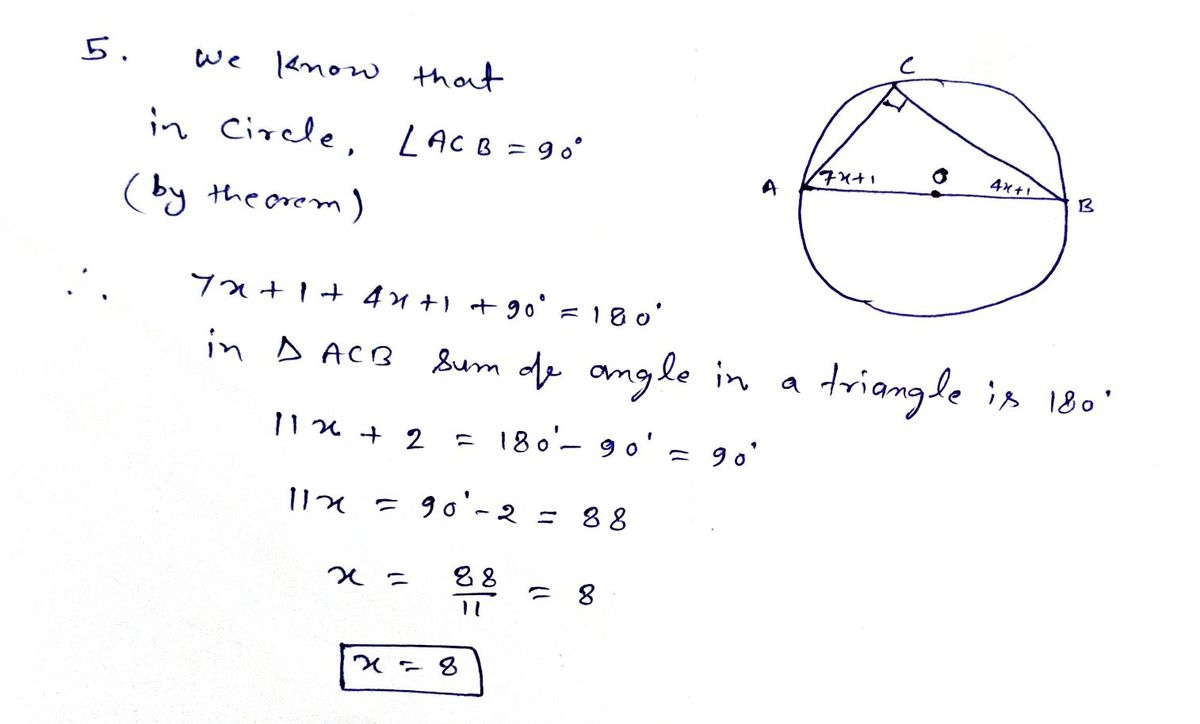 5. We know that
in Circle, ∠ACB = 90°
(by theorem)
C
A
7x+1
O
4x+1
B
∴ 7x + 1 + 4x + 1 + 90° = 180°
in Δ ACB Sum of angle in a triangle is 180°
11x + 2 = 180° - 90° = 90°
11x = 90° - 2 = 88
x = 88/11 = 8
x = 8